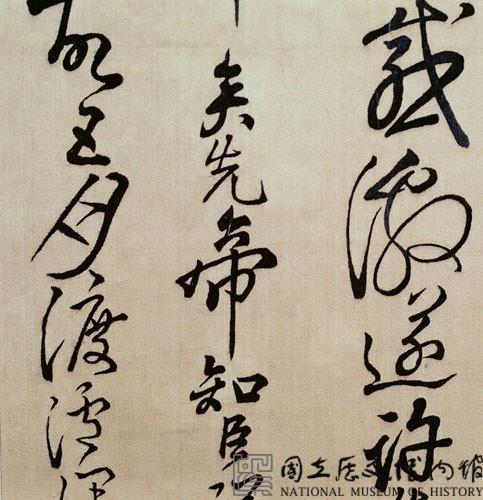 感激遂許
矣先帝知臣
故五月渡瀘深
國立歷史博物館
NATIONAL MUSEUM OF HISTORY